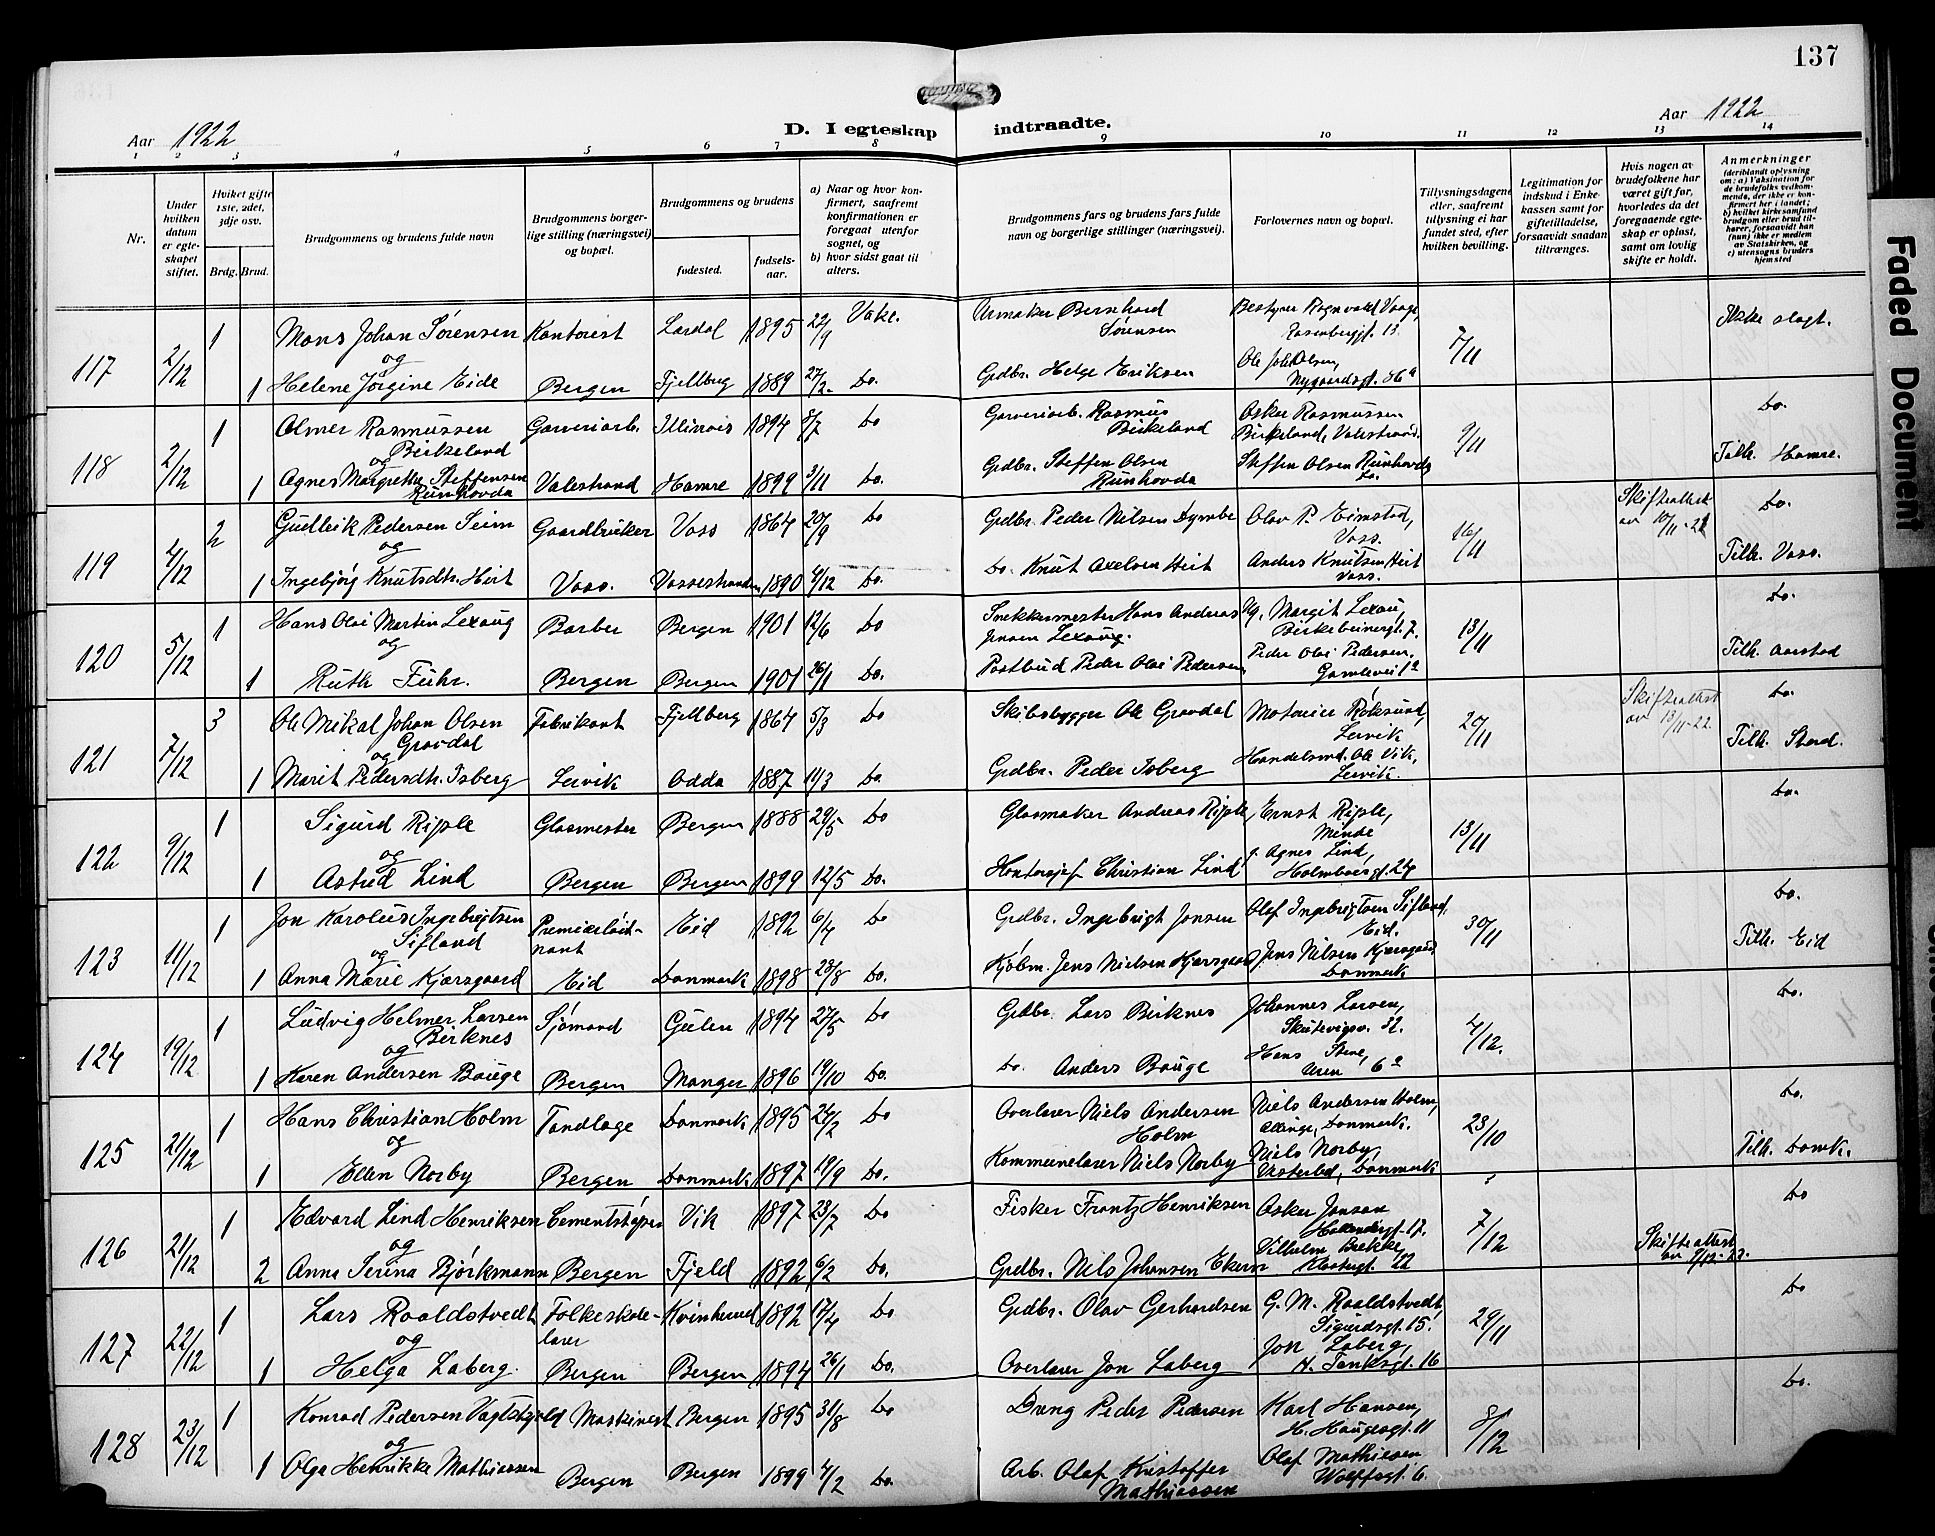 137
Aar 1922
D. I egteskap indtraadte.
Aar 1922
1 2 3 4 5 6 7 8 9 10 11 12 13 14
Nr.
Under hvilken datum er egteskapet stiftet.
Hvilket gifte 1ste, 2det, 3dje osv.
Brdg. Brud.
Brudgommens og brudens fulde navn
Brudgommens borgerlige stilling (næringsvei) og bopæl.
Brudgommens og brudens
fødested. fødselsaar.
a) Naar og hvor konfirmert, saafremt konfirmationen er foregaat utenfor sognet, og
b) hvor sidst gaat til alters.
Brudgommens fars og brudens fars fulde navn og borgerlige stillinger (næringsvei).
Forlovernes navn og bopæl.
Tillysningsdagene eller, saafremt tillysning ei har fundet sted, efter hvilken bevilling.
Legitimation for indskud i Enkekassen samt for giftetilladelse, forsaavidt saadan tiltrænges.
Hvis nogen av brudefolkene har været gift før, hvorledes da det foregaaende egteskap er opløst, samt om lovlig skifte er holdt.
Anmerkninger
(deriblandt oplysning om: a) Vaksination for de brudefolks vedkommende, der ikke er konfirmert her i landet; b) hvilket kirkesamfund brudgom eller brud tilhører, forsaavidt han (hun) ikke er medlem av Statskirken, og c) utensogns bruders hjemsted
117 2/12 1 Mons Johan Sørensen Kontorist Lærdal 1895 22/9 Vake. Urmaker Bernhard Sørensen Bestyrer Rognvald Vaage, Rosenberggt. 13. 7/11 Ikke slegt.
og
1 Helene Jørgine Eide Bergen Fjellberg 1889 27/2 Do. Grdbr. Helge Eriksen Ole Joh. Olsen, Nygaardsgt. 86a
118 2/12 1 Olmer Rasmussen Birkeland Garveriarb. Illinois 1894 8/7 Do Garveriarb. Rasmus Birkeland Oskar Rasmussen Birkeland, Valestrand. 9/11 Do.
og
1 Agnes Margrethe Steffensen Runhovda Valestrand Hamre 1899 3/11 Do. Grdbr. Steffen Olsen Runhovda Steffen Olsen Runhovda Do. Tilh. Hamre.
119 4/12 2 Gulleik Pedersen Seim Gaardbruker Voss 1864 20/9 Do Grdbr. Peder Nilsen Dymbe Olav P. Eimstad, Voss. 16/11 Skifteattest av 10/11-22 Do.
og
1 Ingebjørg Knutsdtr. Hirt Voss. Vossestranden 1890 4/12 Do. Do. Knut Axelsen Hirt Anders Knutsen Hirt Voss. Tilh. Voss.
120 5/12 1 Hans Olai Martin Lexaug Barber Bergen 1901 12/6 Do Snekkermester Hans Andreas Jensen Lexaug. Margit Lexau, Birkebeinergt. 7. 13/11 Do.
og
1 Ruth Fuhr. Bergen Bergen 1901 26/1 Do. Postbud Peder Olai Pedersen Peder Olai Pedersen, Gamlevei 1a Tilh. Aarstad
121 7/12 3 Ole Mikal Johan Olsen Gravdal Fabrikant Fjellberg 1864 5/3 Do Skibsbygger Ole Gravdal Røksund, Lervik 20/11 Skifteattest av 13/11-22. Do.
og
1 Marit Pedersdtr. Isberg Leivik Odda 1887 11/3 Do Grdbr. Peder Isberg Handelsmd. Ole Vik, Lervik. Tilh. Stord.
122 9/12 1 Sigurd Riple Glasmester Bergen 1888 29/5 Do Glasmaker Andreas Riple, Ernst Riple, Minde 13/11 Do.
og
1 Astrid Lind Bergen Bergen 1899 12/5 Do. Kontorsjef Christian Lind Agnes Lind, Holmboesgt. 24
123 11/12 1 Jon Karolus Ingebrigtsen Sifland Premierløitnant Eid 1892 6/4 Do Grdbr. Ingebrigt Jonsen Olaf Ingebrigtsen Sifland, Eid. 30/11 Do.
og
1 Anna Marie Kjærsgaard Eid Danmark 1898 23/8 Do. Kjøbm. Jens Nielsen Kjærsgaard Jens Nilsen Kjærsgaard Danmark Tilh. Eid
124 19/12 1 Ludvig Helmer Larsen Birknes Sjømand Gulen 1894 27/5 Do Grdbr. Lars Birknes Johannes Larsen, Skutevigsv. 32. 4/12. Do.
og
1 Karen Andersen Bauge Bergen Manger 1896 19/10 Do. Do. Anders Bauge Hans Stene, Uren 6a
125 21/12 1 Hans Christian Holm Tandlæge Danmark 1895 24/2 Do Overlærer Niels Andersen Holm Niels Andersen Holm, Allinge, Danmark. 23/10 Do.
og
1 Ellen Norby Bergen Danmark 1897 19/9 Do. Kommunelærer Niels Norby Niels Norby, Vesterbd, Danmark Tilh. Danmk.
126 21/12 1 Edvard Lind Henriksen Cementstøper Vik 1897 23/7 Do Fisker Frantz Henriksen Oskar Jonson 7/12 Do
og
2 Anna Serina Bjørkmann Bergen Fjeld 1892 6/2 Do. Grdbr. Nils Johansen Ekern Vilhelm Brekke, Klostergt. 22 Skifteattest av 9/12-22.
127 22/12 1 Lars Roaldstvedt Folkeskolelærer Kvinherred 1892 17/4 Do Grdbr. Olav Gerhardsen G. M. Roaldstvedt, Sigurdsgt. 15. 29/11 Do
og
1 Helga Laberg. Bergen Bergen 1894 26/1 Do. Overlærer Jon Laberg Jon Laberg, H. Tanksgt. 16
128 23/12 1 Konrad Pedersen Vagtskjold Maskinist Bergen 1895 31/8 Do Dreng Peder Pedersen Karl Hansen, H. Haugesgt. 11 8/12 Do.
og
1 Olga Henrikke Mathiassen Bergen Bergen 1899 4/2 Do. Arb. Olaf Kristoffer Mathiassen Olaf Mathiesen Wolffsgt. 6.
Faded Document